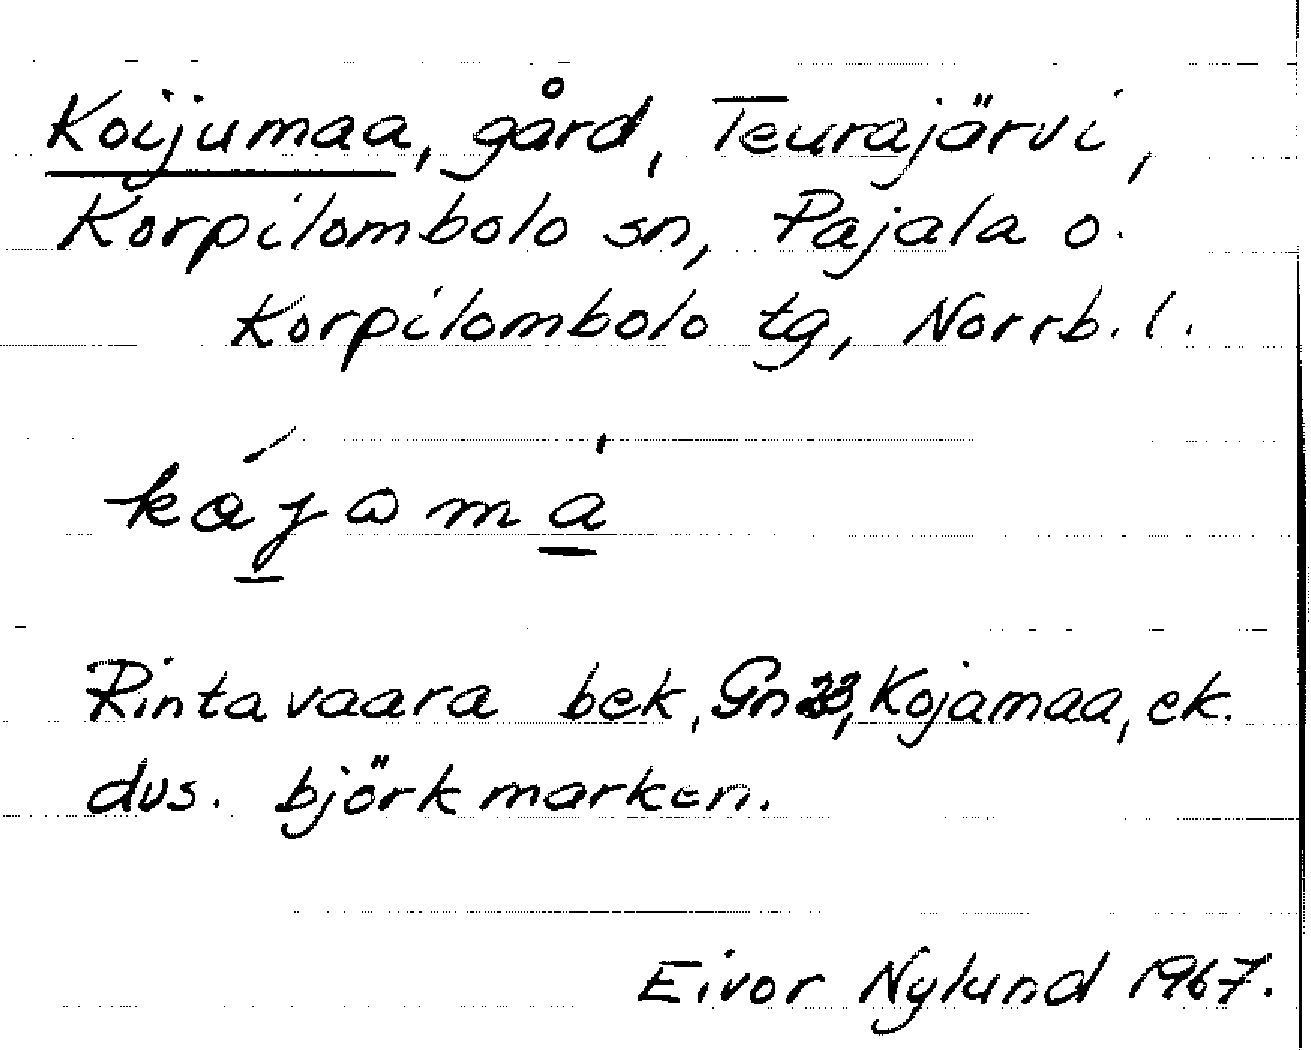 Koijumaa, gård, Teurajärvi,
Korpilombolo sn, Pajala o.
Korpilombolo tg, Norrb. l.
Rintavaara bek, Gn 33, Kojamaa, ek.
dvs. björkmarken.
Eivor Nylund 1967.